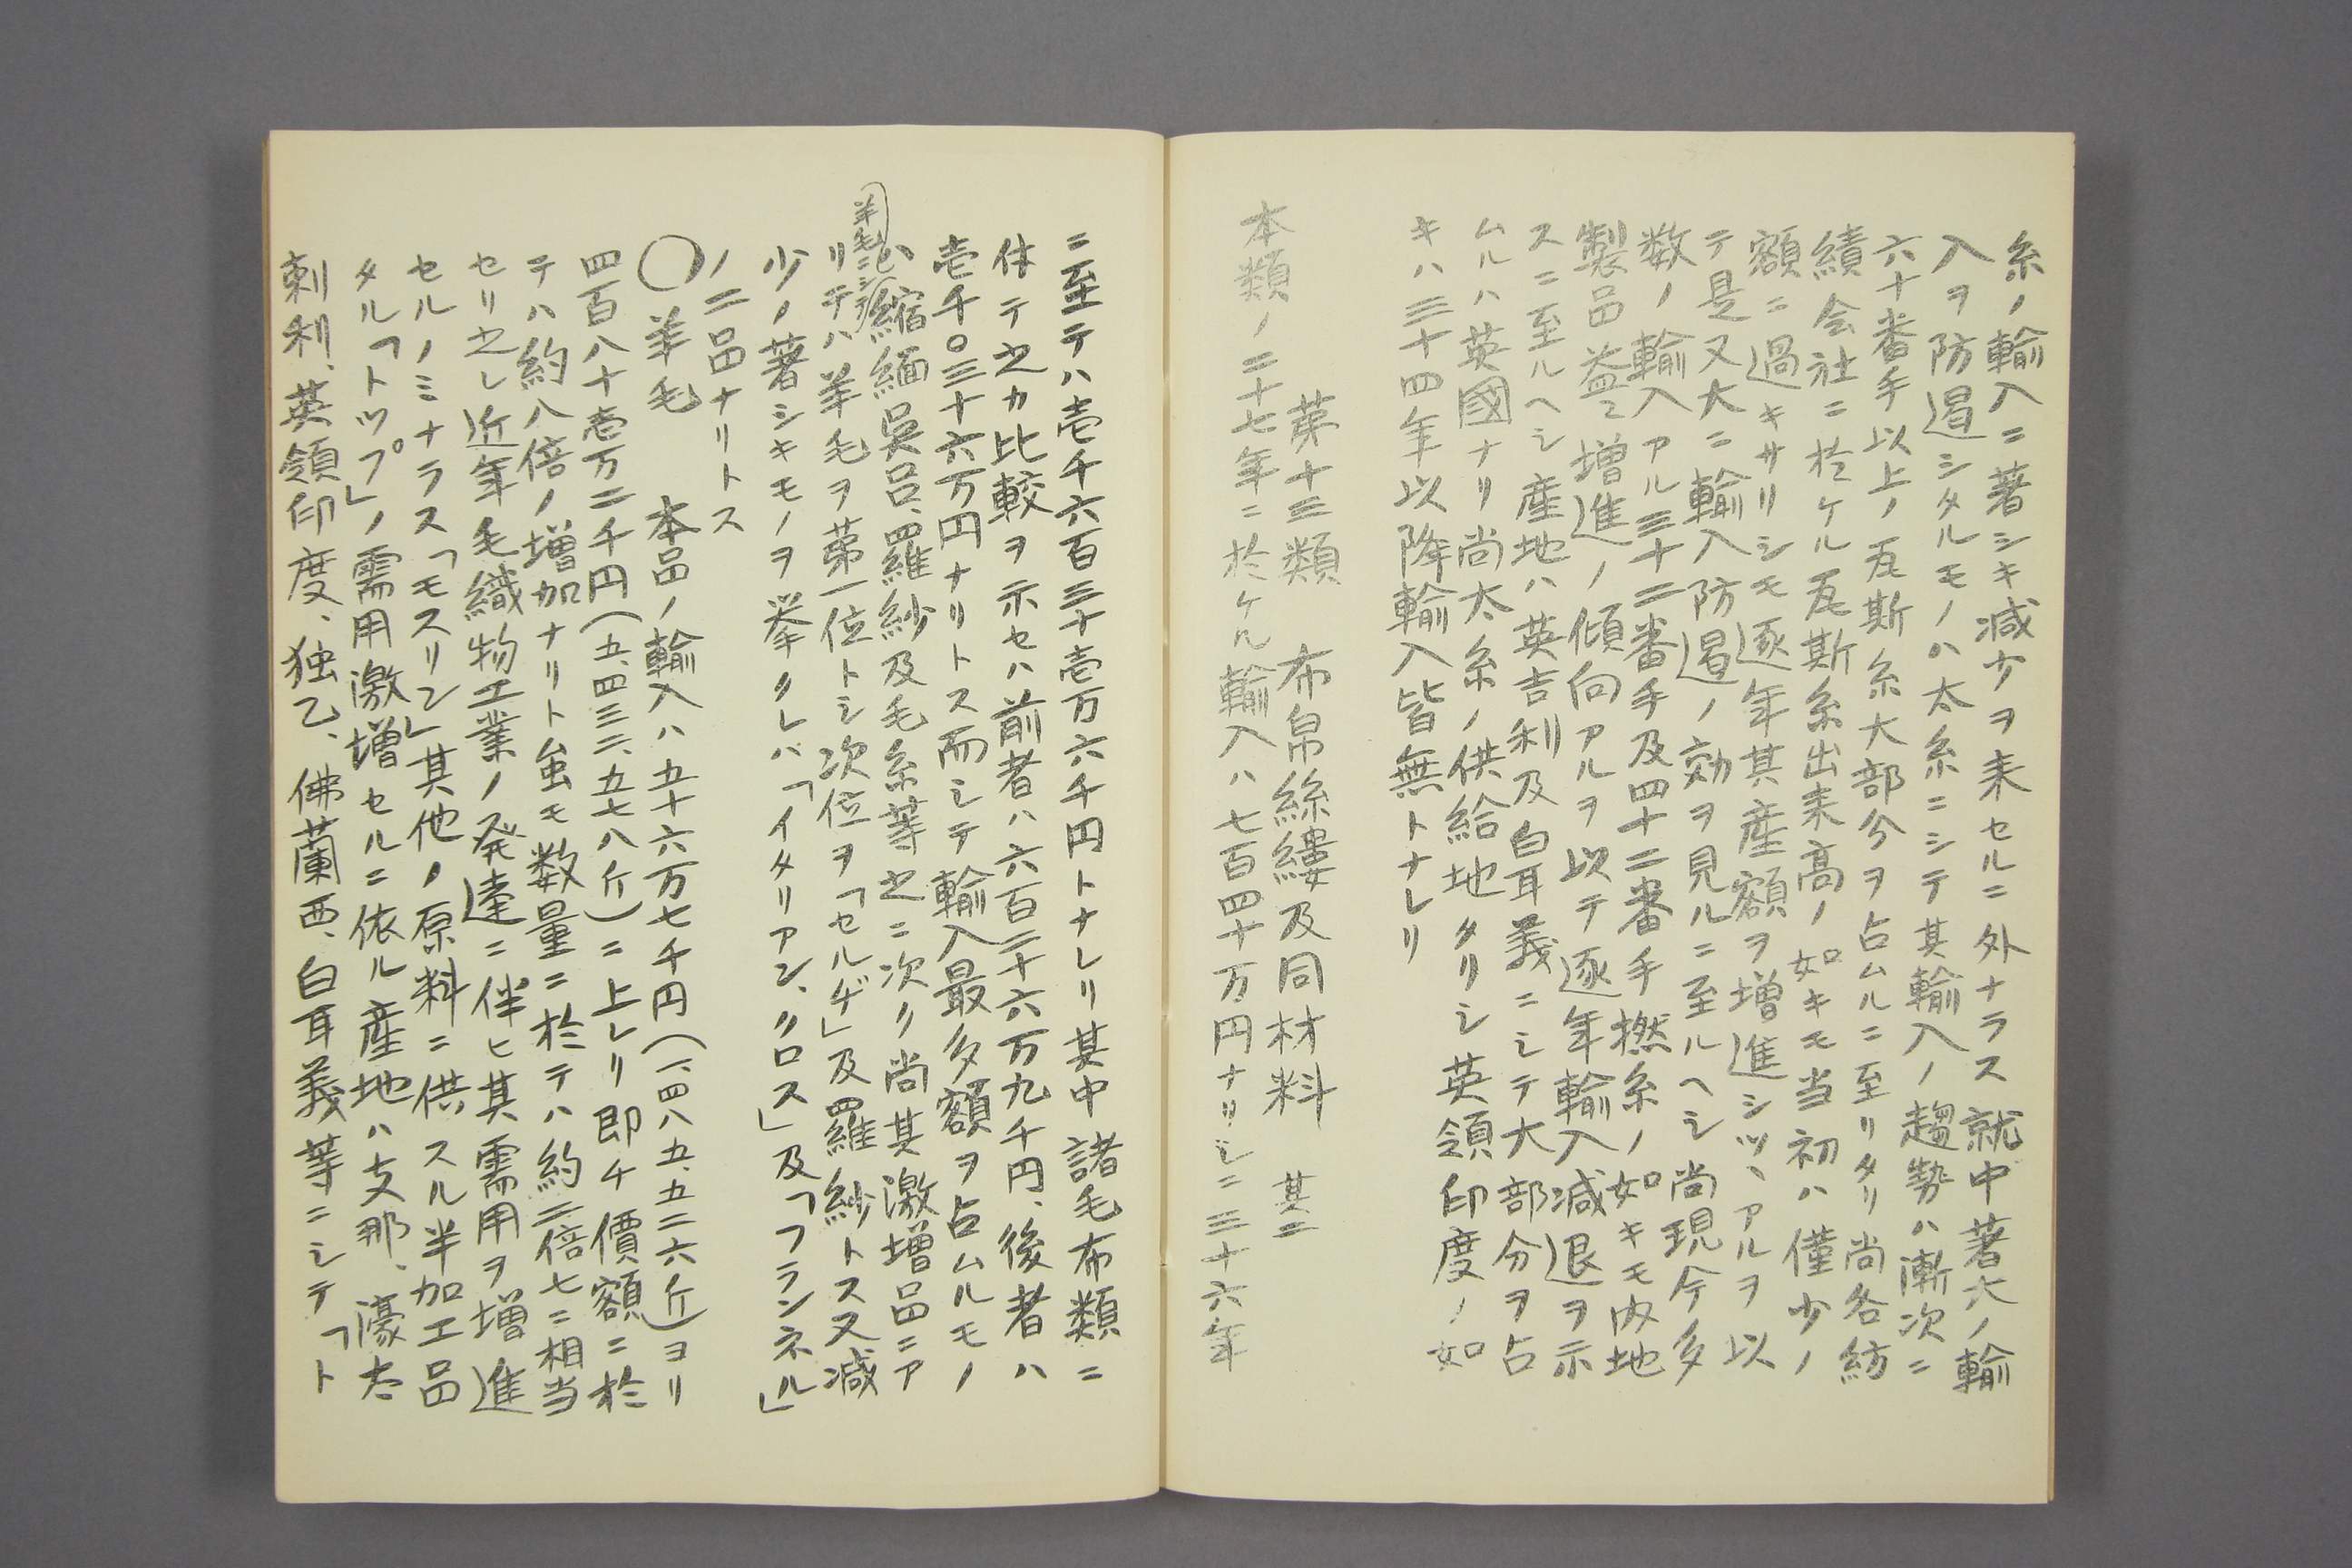 糸ノ輸入ニ著シキ減少ヲ来セルニ外ナラス就中著大ノ輸
入ヲ防遏シタルモノハ太糸ニシテ其輸入ノ趨勢ハ漸次ニ
六十番手以上ノ瓦斯糸大部分ヲ占ムルニ至リタリ尚各紡
績会社ニ於ケル瓦斯糸出来高ノ如キモ当初ハ僅少ノ
額ニ過キサリシモ逐年其産額ヲ増進シツヽアルヲ以
テ是又大ニ輸入防遏ノ効ヲ見ルニ至ルヘシ尚現今多
数ノ輸入アル三十二番手及四十二番手撚糸ノ如キモ内地
製品益々増進ノ傾向アルヲ以テ逐年輸入減退ヲ示
スニ至ルヘシ産地ハ英吉利及白耳義ニシテ大部分ヲ占
ムルハ英國ナリ尚太糸ノ供給地タリシ英領印度ノ如
キハ三十四年以降輸入皆無トナレリ
第十三類 布帛絲縷及同材料 其二
本類ノ二十七年ニ於ケル輸入ハ七百四十万円ナリシニ三十六年
ニ至テハ壱千六百三十壱万六千円トナレリ其中諸毛布類ニ
休テ之カ比較ヲ示セハ前者ハ六百二十六万九千円、後者ハ
壱千〇三十六万円ナリトス而シテ輸入最多額ヲ占ムルモノ
ハ縮緬呉呂、羅紗及毛糸等之ニ次リ尚其激増品ニア
羊毛ニシテ
リテハ羊毛ヲ第一位トシ次位ヲ「セルヂ」及羅紗トス又減
少ノ著シキモノヲ挙クレバ「イタリアン、クロス」及「フランネル」
ノ二品ナリトス
〇羊毛 本品ノ輸入ハ五十六万七千円(一、四八五、五二六斤)ヨリ
四百八十壱万二千円(五、四三二、五七八斤)ニ上レリ即チ價額ニ於
テハ約八倍ノ増加ナリト虽モ数量ニ於テハ約二倍七ニ相当
セリ之レ近年毛織物工業ノ発達ニ伴ヒ其需用ヲ増進
セルノミナラス「モスリン」其他ノ原料ニ供スル半加工品
タル「トップ」ノ需用激増セルニ依ル産地ハ支那、濠太
剌利、英領印度、独乙、佛蘭西、白耳義等ニシテ「ト